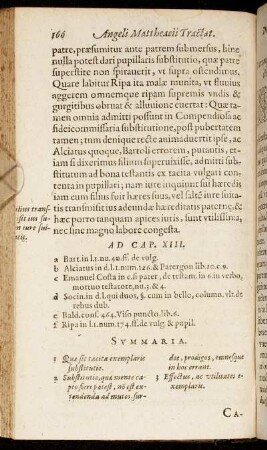 166 Angeli Matthæacii Tractat.
patre, præsumitur ante patrem submersus, hinc
nulla potest dari pupillaris substitutio, quæ patre
superstite non spirauerit, vt supra ostendimus.
Quare labitur Ripa ita malè munita, vt fluuius
aggerem omnemque ripam supremis vndis &
gurgitibus obruat & alluuione euertat: Quæ ta-
men omnia admitti possunt in Compendiosa ac
fideicommissaria substitutione, post pubertatem
tamen; tum denique rectè animaduertit ipse, ac
Alciatus quoque, Bartoli errorem, putantis, et-
iam si dixerimus filium superuixisse, admitti sub-
stitutum ad bona testantis ex tacita vulgari con-
tenta in pupillari; nam iure inquiunt sui hæredis
iam cum filius suit hæres suus, vel saltē iure suita-
tis transmissionis adeundæ hæreditatis patern̄; &
hæc porro tanquam apices iuris, sunt vtilissima,
nec sine magno labore congesta.
AD CAP. XIII.
a Bart. in l.1. nu. 40. ff. de vulg.
b Alciatus in d.l.1. num. 126. & Parergon lib. 10. c. 9.
c Emanuel Costa in c. si pater, de testam. in 6. in verbo,
mortuo testatore, nu. 3. & 4.
d Socin. in d.l. qui duos, §. cum in bello, column. vlt. de
rebus dub.
e Bald. consil. 464. Viso puncto, lib. 6.
f Ripa in l.1. num. 174. ff. de vulg. & pupil.
SVMMARIA.
1 Quæ sit tacita exemplaris
substitutio.
2 Substitutio, quæ mente ca-
pto fieri potest, nō est ex-
tendenda ad mutos, sur-
dos, prodigos, omnesque
in hoc errant.
3 Effectus, ac vtilitates e-
xemplaris.
CA-